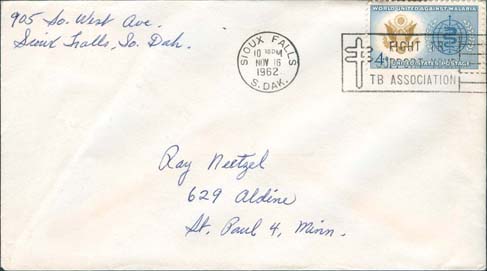 905 So. West Ave.
Sioux Falls, So. Dak.
SIOUX FALLS
NOV 16
1962
S. DAK.
WORLD UNITED AGAINST MALARIA
FIGHT TB
4¢
UNITED STATES POSTAGE
TB ASSOCIATION
Ray Neetzel
629 Aldine
St. Paul 4, Minn.